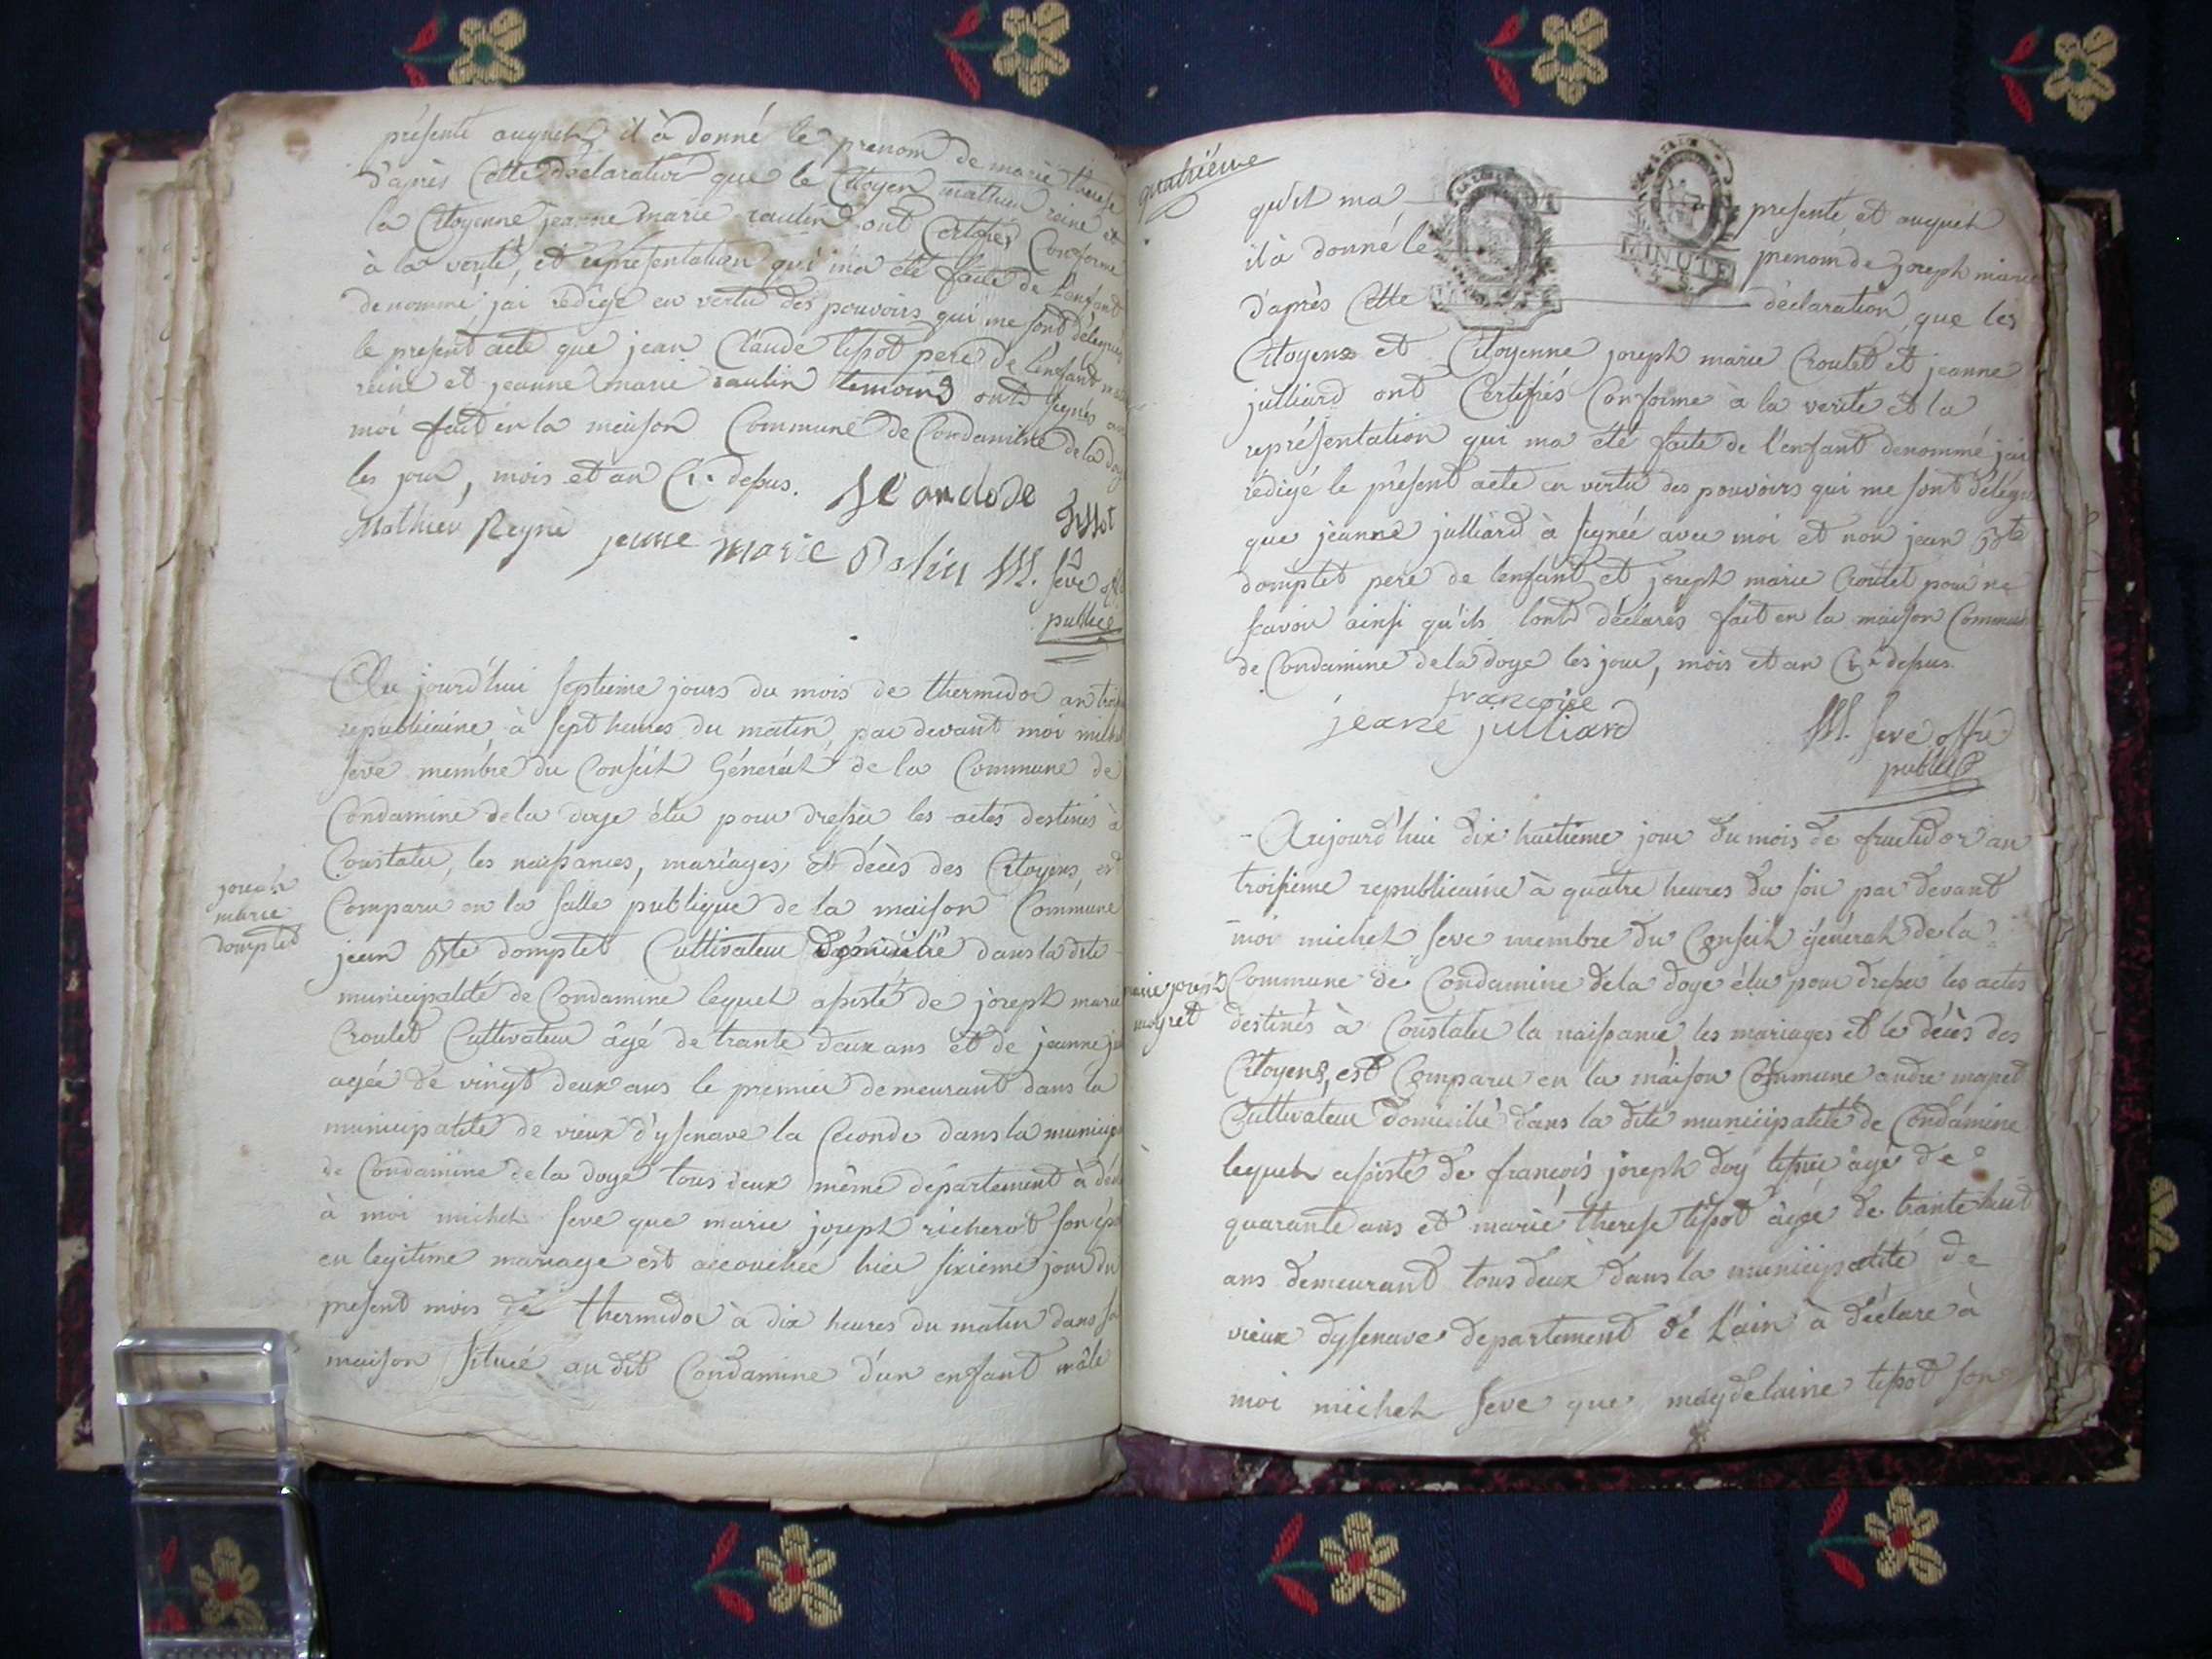 présenté auquel il à donné le prenom de marie therese
d'après Cette déclaration que le Citoyen mathieu reine et
la Citoyenne jeanne marie raulin ont Certifiés Conforme
à la verité, et représentation qui ma été faite de l'enfant
denommé jai rédigé en vertu des pouvoirs qui me sont délegués
le present acte que jean Claude tissot pere de l'enfant
reine et jeanne marie raulin temoins ont signés
moi fait en la maison Commune de Condamine de la doye
les jour, mois et an Ci. dessus.
Tissot
Mathieu Reyne jeane marie M. seve
public
Au jourd'hui septieme jours du mois de thermidor an
republicaine à sept heures du matin par devant moi michel
seve membre du Conseil Général de la Commune de
Condamine de la doye élu pour dresser les actes destinés à
Constater, les naissances, mariages et décès des Citoyens, est
Comparu en la salle publique de la maison Commune
joseph
marie
domptet
jean Bte domptet Cultivateur domicilié dans la dite
municipalité de Condamine lequel assisté de joseph marie
Croutet Cultivateur âgé de trante deux ans et de jeanne
agée de vingt deux ans le premier demeurant dans la
municipalité de vieux d'ysenave la seconde dans la
de Condamine de la doye tous deux même département à
à moi michel seve que marie joseph richerot son
en legitime mariage est accouchée hier sixieme jour du
present mois de thermidor à dix heures du matin dans sa
maison située au dit Condamine d'un enfant mâle
quatriéme
qu'il ma presenté, et auquel
il à donné le prenom de joseph marie
MINUTE
d'après Cette déclaration que les
Citoyens et Citoyenne joseph marie Croutet et jeanne
julliard ont Certifiés Conforme à la verité et la
représentation qui ma été faite de l'enfant denommé jai
rédigé le présent acte en vertu des pouvoirs qui me sont
que jeanne julliard à signée avec moi et non jean Bte
domptet pere de lenfant et joseph marie Croutet pour ne
savoir ainsi qu'ils lont déclarés fait en la maison Commune
de Condamine de la doye les jour, mois et an Ci. dessus.
françoise
jeane julliard
M. Seve offié
public
Aujourd'hui dix huitieme jour du mois de fructidor an
troisieme republicaine à quatre heures du soir par devant
moi michel seve membre du Conseil général de la
Commune de Condamine de la doye élu pour dresser les actes
marie joseph
mayret
destinés à Constater la naissance les mariages et le décès des
Citoyens, est Comparu en la maison Commune andre mayret
Cultivateur domicilié dans la dite municipalité de Condamine
lequel assisté de françois joseph doy tissier âgé de
quarante ans et marie therese tissot âgée de trante huit
ans demeurant tous deux dans la municipalité de
vieux dysenave departement de L'ain à déclaré à
moi michel seve que magdelaine tissot son